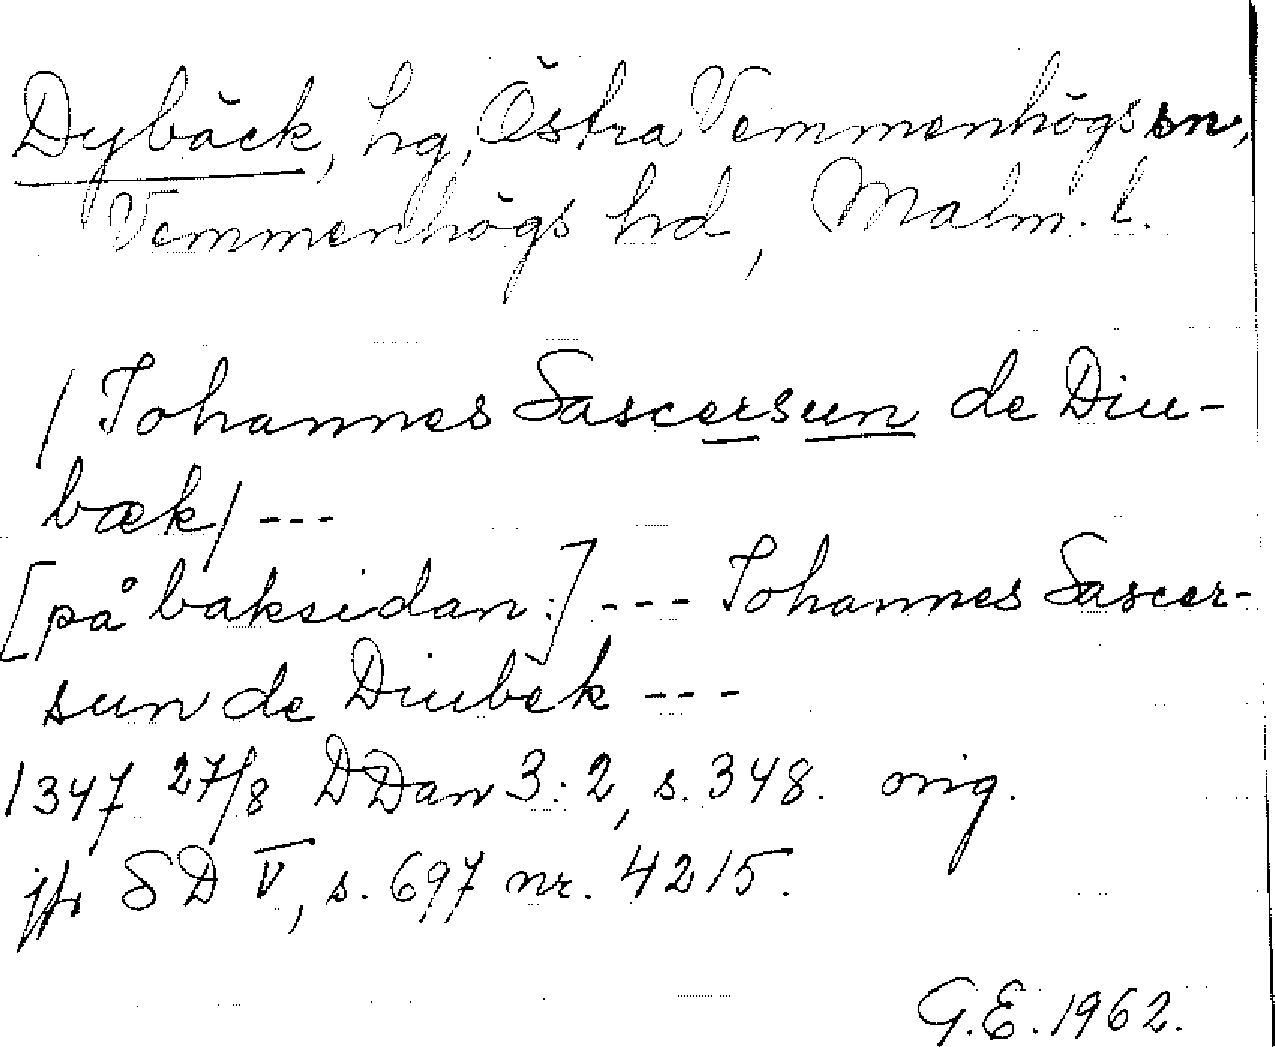 Dybäck, hg, Östra Vemmenhögs sn,
Vemmenhögs hd, Malm. l.
/Johannes Sascersun de Diu-
bæk/ ---
[på baksidan:] --- Johannes Sascer-
sun de Diubek ---
1347 27/8 DDan 3:2, s. 348. orig.
jfr SD V, s. 697 nr. 4215.
G.E. 1962.